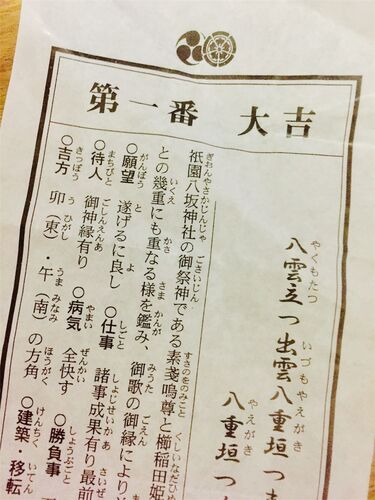 第一番 大吉
八雲立つ出雲八重垣つま
八重垣つ
祇園八坂神社の御祭神である素戔嗚尊と櫛稲田姫
との幾重にも重なる様を鑑み、御歌の御縁により
○願望 遂げるに良し ○仕事 諸事成果有り最前
○待人 御神縁有り ○病気 全快す ○勝負事
○吉方 卯(東)・午(南)の方角 ○建築・移転